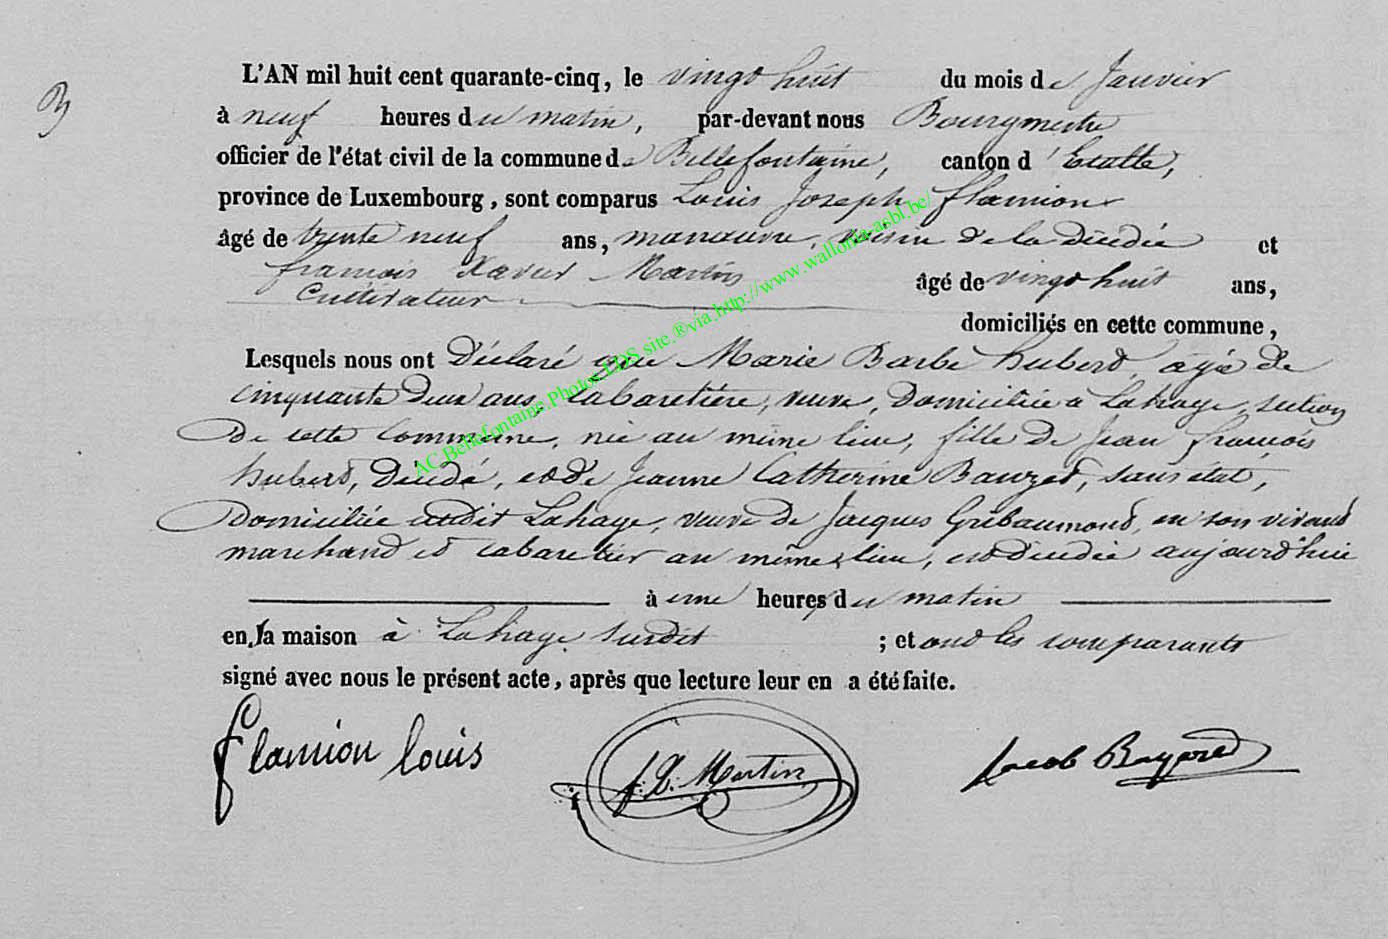 3
L'AN mil huit cent quarante-cinq, le vingt huit du mois de Janvier
à neuf heures du matin, par-devant nous Bourgmestre
officier de l'état civil de la commune de Bellefontaine, canton d'Etalle,
province de Luxembourg, sont comparus Louis Joseph flamion
âgé de trente neuf ans, manœuvre, voisin de la décédée et
françois Xavier Martin âgé de vingt huit ans,
Cultivateur
domiciliés en cette commune,
Lesquels nous ont Déclaré que Marie Barbe hubert, agé de
cinquante deux ans, cabaretière, veuve, domiciliée à Lahage, section
de cette Commune, née au même lieu, fille de Jean françois
hubert, décédé, et de Jeanne Catherine Bauzet, sans état,
Domiciliée audit Lahage, veuve de Jacques Gribaumond, en son vivant
marchand et cabaretier au même lieu, est décédée aujourd'hui
à une heures du matin
en sa maison à Lahage susdit ; et ont les comparants
signé avec nous le présent acte, après que lecture leur en a été faite.
flamion louis f. X. Martin Jacob Bayard
AC.Bellefontaine.Photos.LDS site.®via.http://www.wallonia-asbl.be/